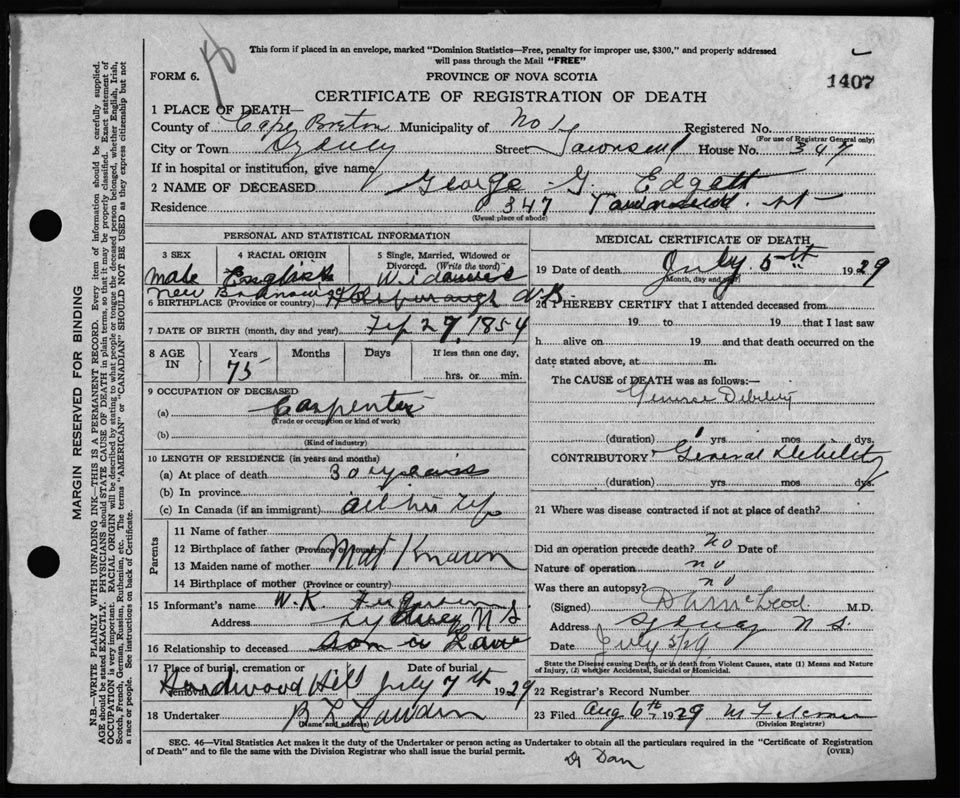 This form if placed in an envelope, marked "Dominion Statistics—Free, penalty for improper use, $300," and properly addressed
will pass through the Mail "FREE"
FORM 6. PROVINCE OF NOVA SCOTIA 1407
CERTIFICATE OF REGISTRATION OF DEATH
1 PLACE OF DEATH—
County of Cape Breton Municipality of Registered No.
(For use of Registrar General only)
City or Town Sydney Street Townsend House No. 347
If in hospital or institution, give name
2 NAME OF DECEASED George G. Edgett
Residence 347 Townsend St
(Usual place of abode)
PERSONAL AND STATISTICAL INFORMATION
3 SEX 4 RACIAL ORIGIN 5 Single, Married, Widowed or Divorced. (Write the word)
male English
New Brunswick N B
6 BIRTHPLACE (Province or country)
7 DATE OF BIRTH (month, day and year) 1854
8 AGE IN Years Months Days If less than one day,
75 hrs. or min.
9 OCCUPATION OF DECEASED
(a) Carpenter
(Trade or occupation or kind of work)
(b)
(Kind of industry)
10 LENGTH OF RESIDENCE (in years and months)
(a) At place of death 30 years
(b) In province
(c) In Canada (if an immigrant) all his life
Parents
11 Name of father
12 Birthplace of father (Province or country)
Not Known
13 Maiden name of mother
14 Birthplace of mother (Province or country)
15 Informant's name W. K. Ferguson
Address Sydney N S
16 Relationship to deceased Son in Law
17 Place of burial, cremation or removal Date of burial
Hardwood Hill July 7th 1929
18 Undertaker
(Name and address)
MEDICAL CERTIFICATE OF DEATH
19 Date of death July 5th 1929
(Month, day and year)
20 I HEREBY CERTIFY that I attended deceased from
19 to 19 that I last saw
h alive on 19 and that death occurred on the
date stated above, at m.
The CAUSE of DEATH was as follows:—
General Debility
(duration) 1 yrs mos dys.
CONTRIBUTORY General Debility
(duration) yrs mos dys.
21 Where was disease contracted if not at place of death?
Did an operation precede death? no Date of
Nature of operation no
Was there an autopsy? no
(Signed) McLeod M.D.
Address Sydney N S.
Date July 5/29
State the Disease causing Death, or in death from Violent Causes, state (1) Means and Nature
of Injury, (2) whether Accidental, Suicidal or Homicidal.
22 Registrar's Record Number
23 Filed Aug 6th 1929
(Division Registrar)
SEC. 46—Vital Statistics Act makes it the duty of the Undertaker or person acting as Undertaker to obtain all the particulars required in the "Certificate of Registration
of Death" and to file the same with the Division Registrar who shall issue the burial permit. (OVER)
Dr Dan
MARGIN RESERVED FOR BINDING
N.B.—WRITE PLAINLY WITH UNFADING INK—THIS IS A PERMANENT RECORD. Every item of information should be carefully supplied.
AGE should be stated EXACTLY. PHYSICIANS should STATE CAUSE OF DEATH in plain terms, so that it may be properly classified. Exact statement of
OCCUPATION is very important. RACIAL ORIGIN will be described by stating to what people or tongue the deceased person belonged, whether English, Irish,
Scotch, French, German, Russian, Ruthenian, etc. The terms "AMERICAN" or "CANADIAN" SHOULD NOT BE USED as they express citizenship but not
a race or people. See instructions on back of Certificate.